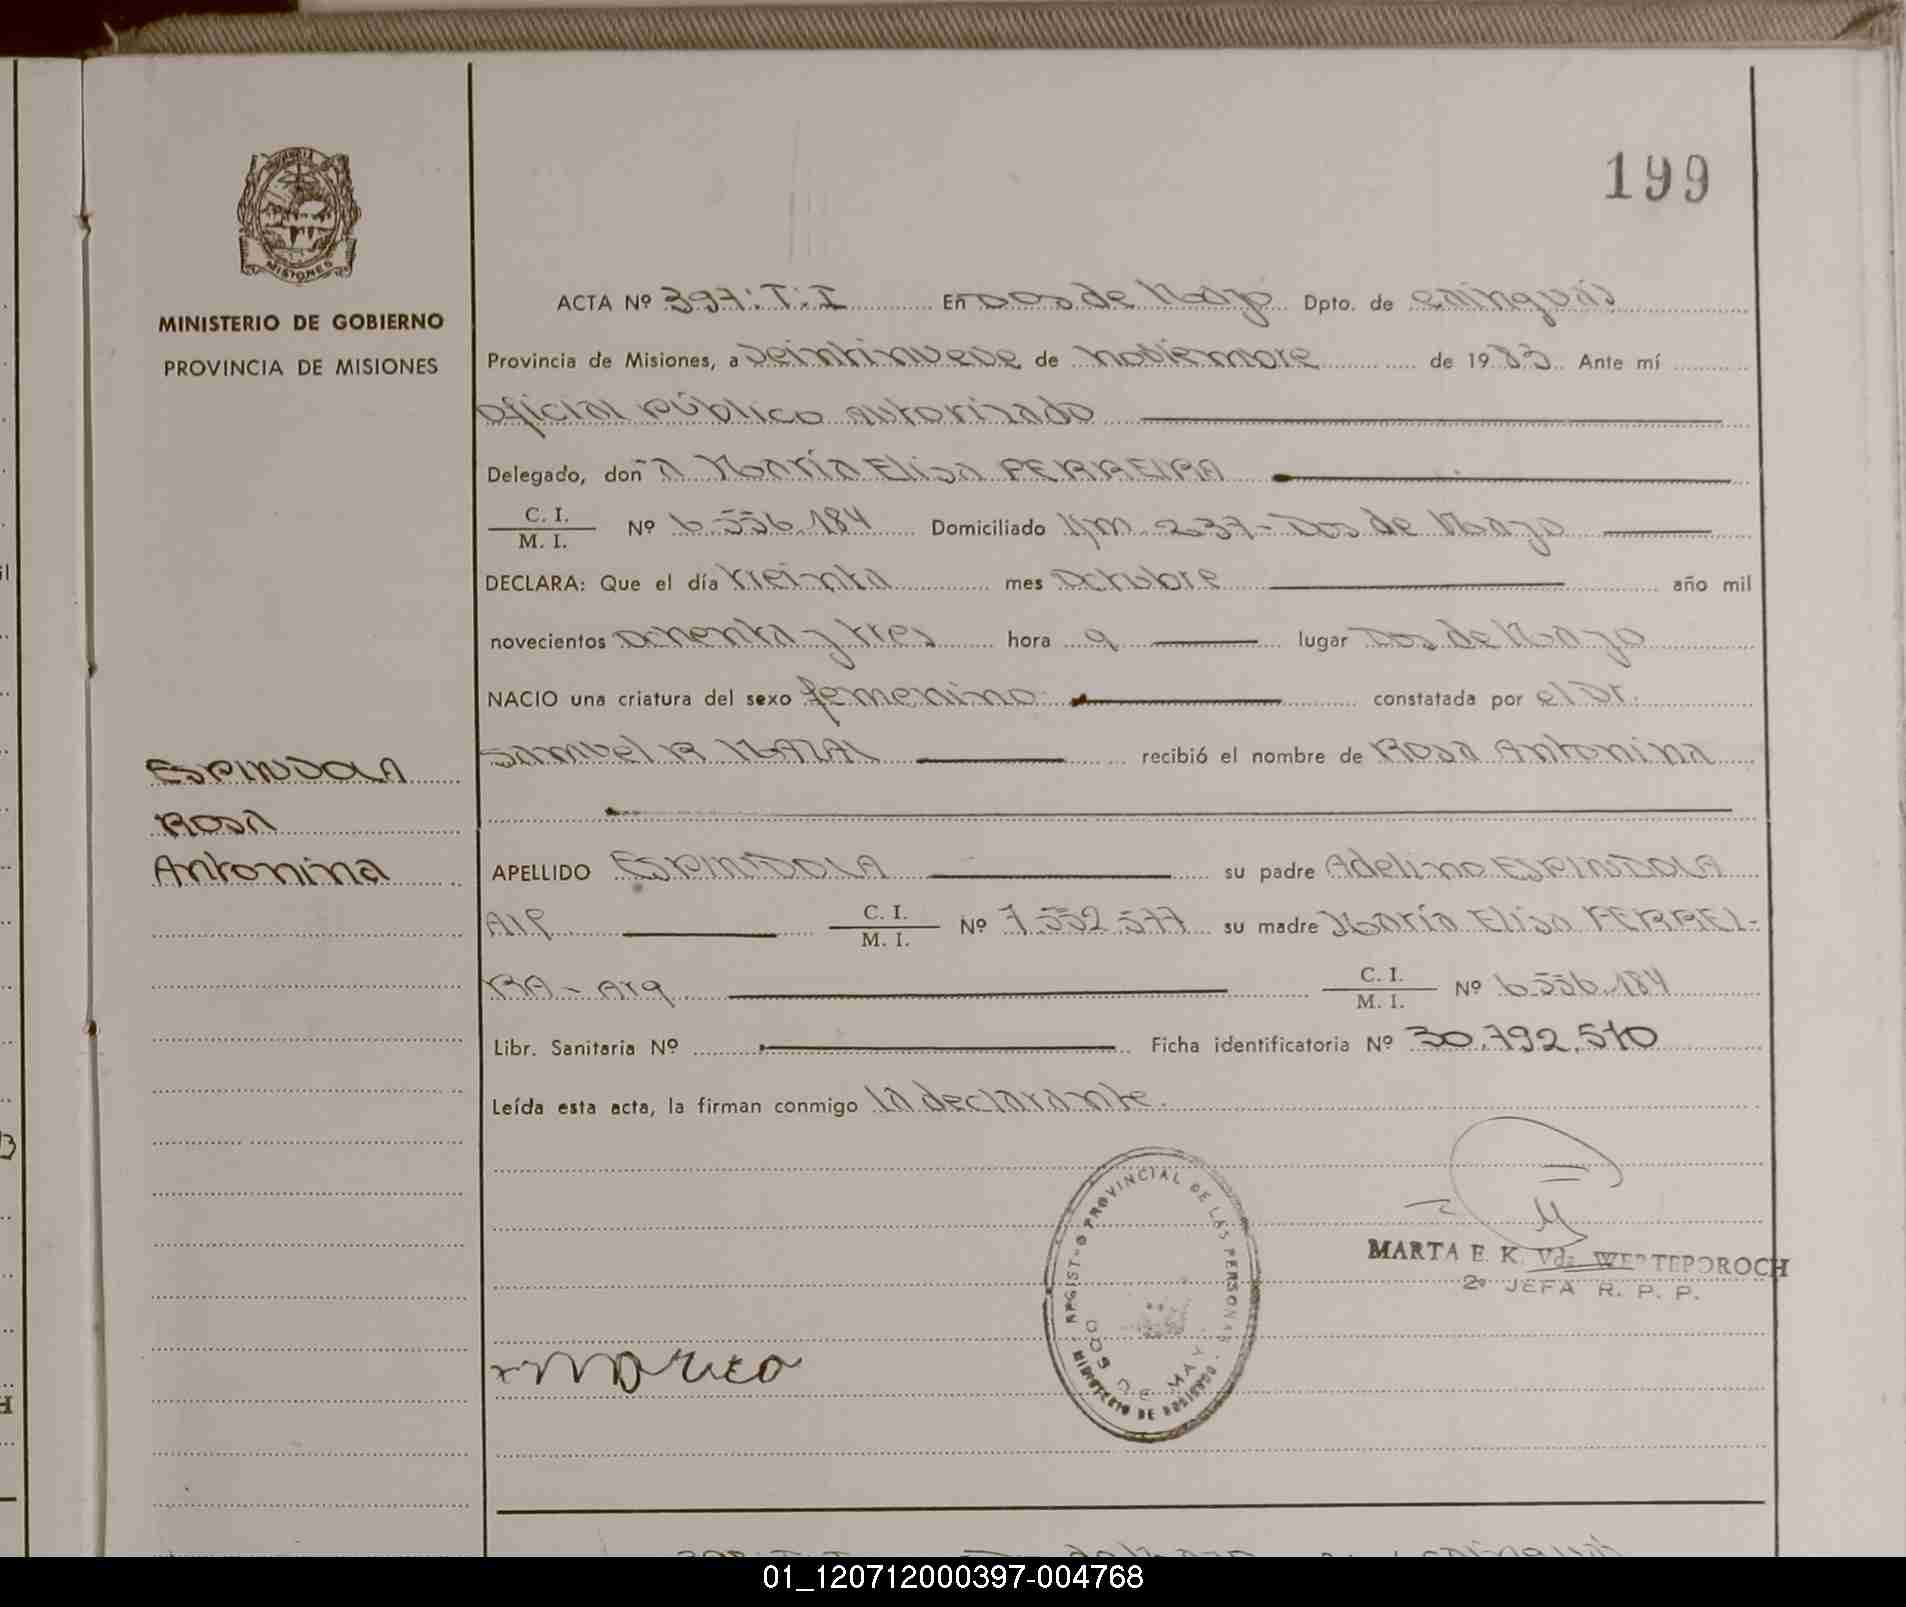 199
MINISTERIO DE GOBIERNO
PROVINCIA DE MISIONES
ESPINDOLA
ROSA
Antonina
ACTA Nº 397:T:I En Dos de Mayo Dpto. de Cainguás
Provincia de Misiones, a veintinueve de noviembre de 1983 Ante mí
oficial público autorizado
Delegado, don~a María Elisa FERREIRA
C. I. / M. I. Nº 6.556.184 Domiciliado Km. 237-Dos de Mayo
DECLARA: Que el día treinta mes octubre año mil
novecientos ochenta y tres hora 9 lugar Dos de Mayo
NACIO una criatura del sexo femenino constatada por el Dr.
Samuel R MAZAL recibió el nombre de Rosa Antonina
APELLIDO ESPINDOLA su padre Adelino ESPINDOLA
C. I. / M. I. Nº 7.552.577 su madre María Elisa FERREI-
RA - Arg C. I. / M. I. Nº 6.556.184
Libr. Sanitaria Nº Ficha identificatoria Nº 30.792.570
Leída esta acta, la firman conmigo la declarante.
REGISTRO PROVINCIAL DE LAS PERSONAS
DOS DE MAYO
MINISTERIO DE GOBIERNO
MARTA E. K. Vda. WERTEPOROCH
2º JEFA R. P. P.
01_120712000397-004768